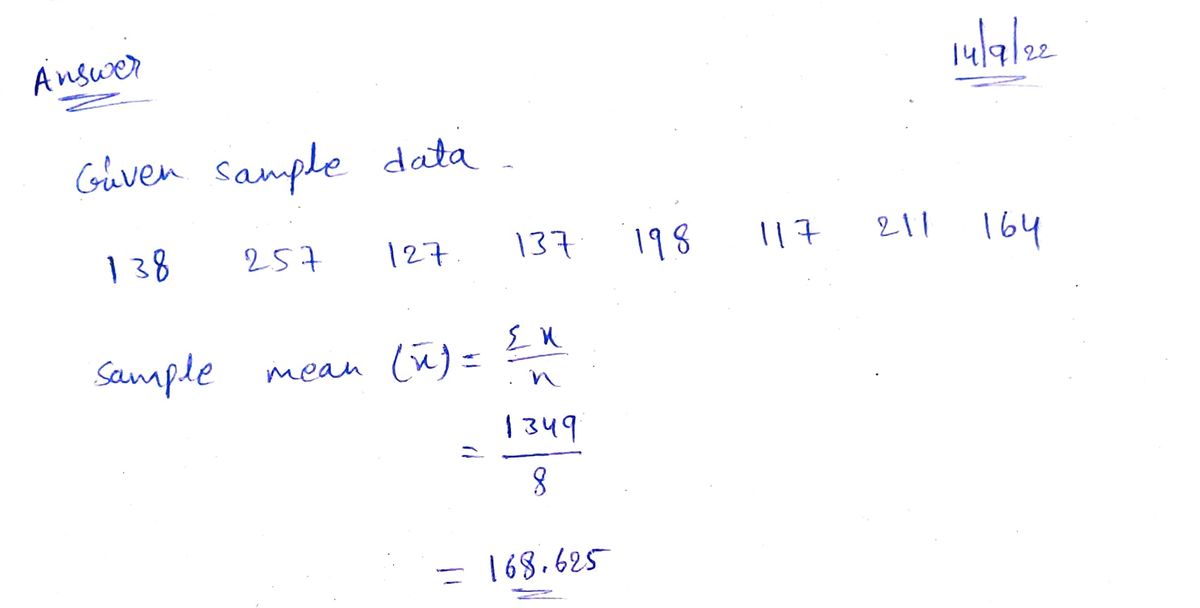 14/9/22
Answer
Given sample data -
138 257 127 137 198 117 211 164
Sample mean (x̄) = Σx/n
= 1349/8
= 168.625